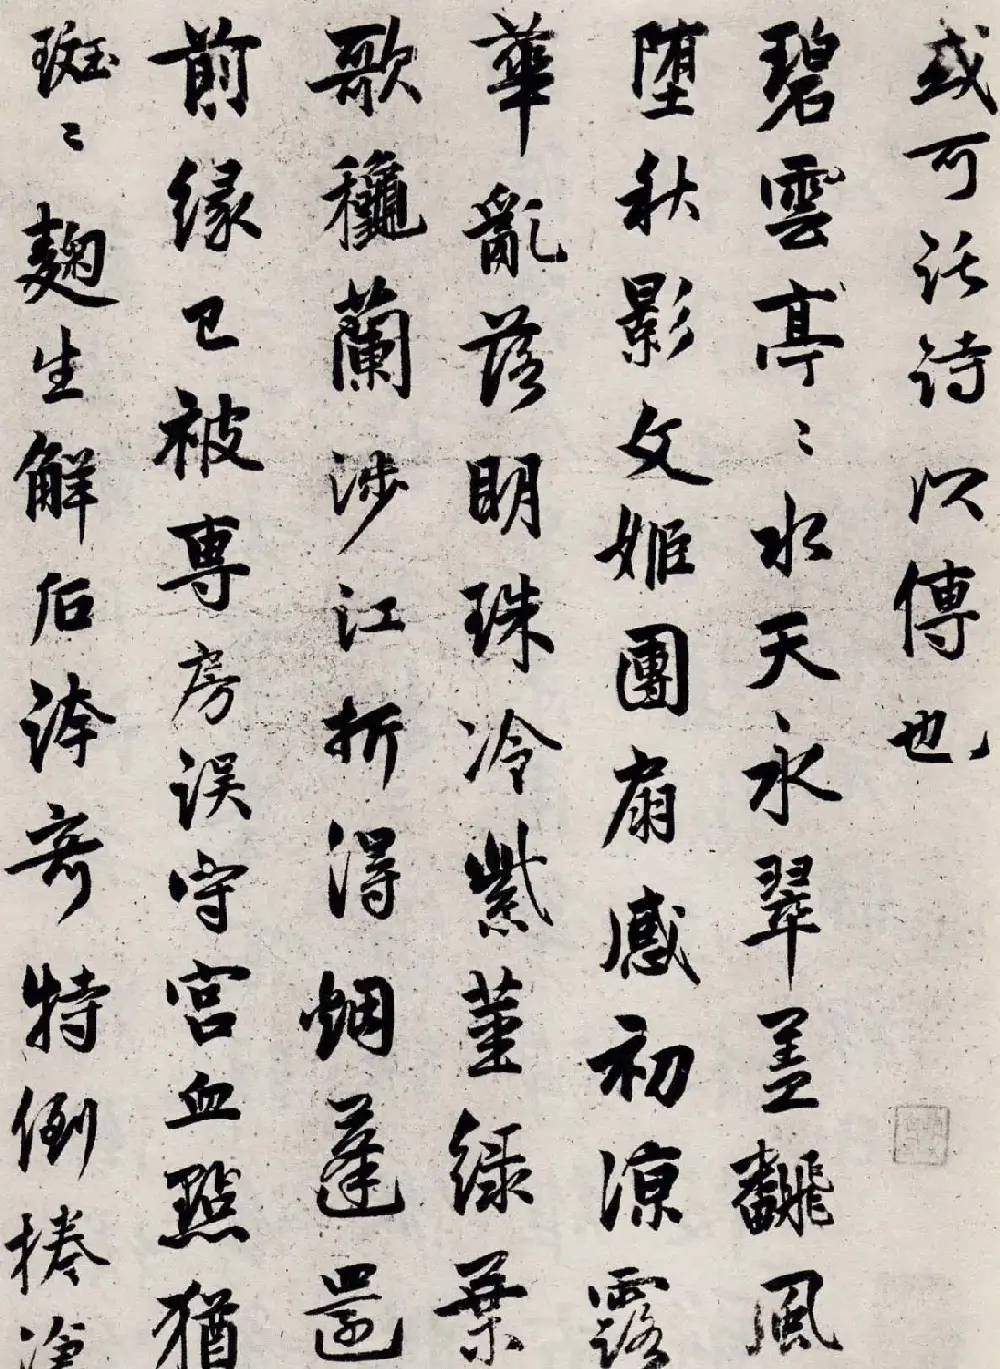 或可託詩以傳也
碧雲亭〻水天永翠盖飜風
墮秋影文姬團扇感初涼露
華亂落明珠冷紫菫綠葉
歌穐蘭涉江折得烟蓬還
前緣已被專房誤守宮血點猶
斑〻麴生解后誇奇特倒捲